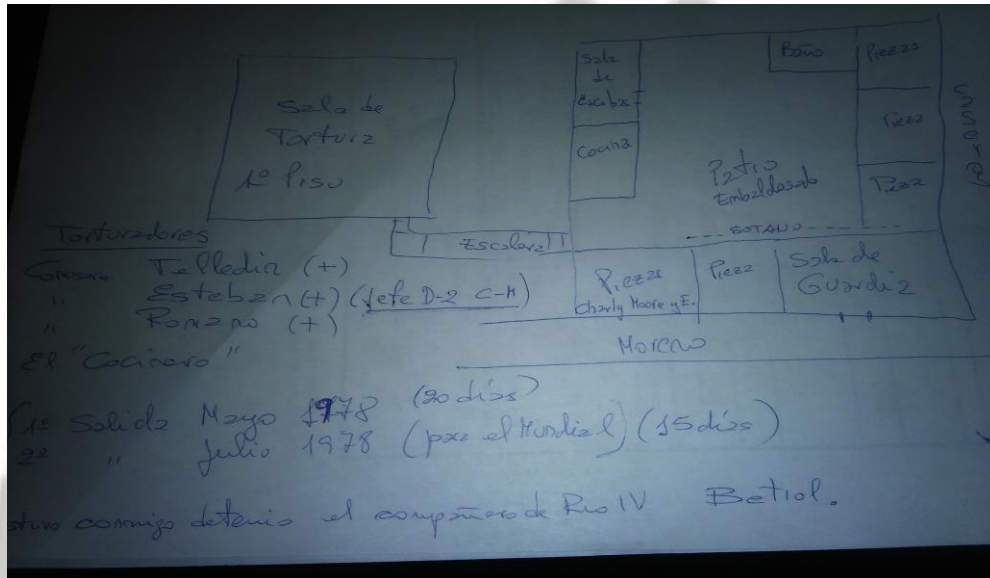 Sala de
Tortura
1º Piso
Sala
de
Cocina
Baño
Pieza
Pieza
Pieza
Patio
Embaldosado
SOTANO
Escalera
Piezas
Charly Moore y E.
Pieza
Sala de
Guardia
Moreno
Torturadores
Telledin (+)
" Esteban (+) (Jefe D-2 C-M)
" Romano (+)
El "Cocinero"
(1º Salida Mayo 1978 (20 días)
2º " Julio 1978 (para el Mundial) (15 días)
conmigo detenio el compañero de Rio IV Betiol.